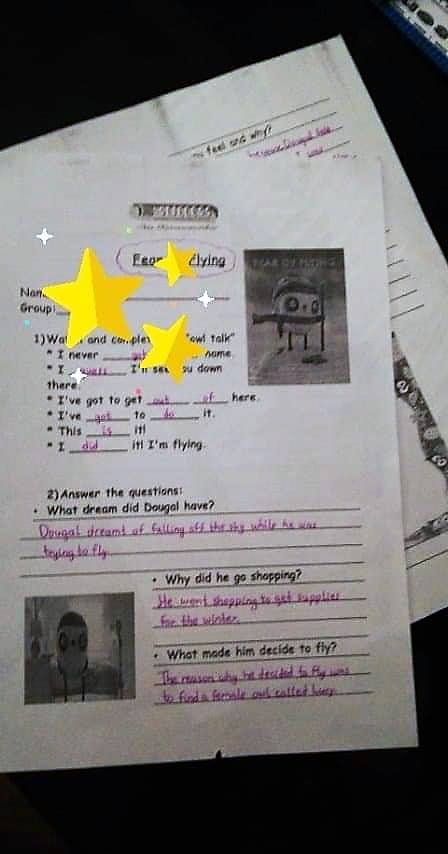 feel and why?
because Dougal
SUCCESS
Fear Flying
FEAR OF FLYING
Nam
Group:
1)Wa and comple "owl talk"
* I never got name.
* I guess I'll see you down
there.
* I've got to get out of here.
* I've got to do it.
* This is it!
* I did it! I'm flying.
2)Answer the questions:
• What dream did Dougal have?
Dougal dreamt of falling off the sky while he was
trying to fly.
• Why did he go shopping?
He went shopping to get supplies
for the winter.
• What made him decide to fly?
The reason why he decided to fly was
to find a female owl called Lucy.